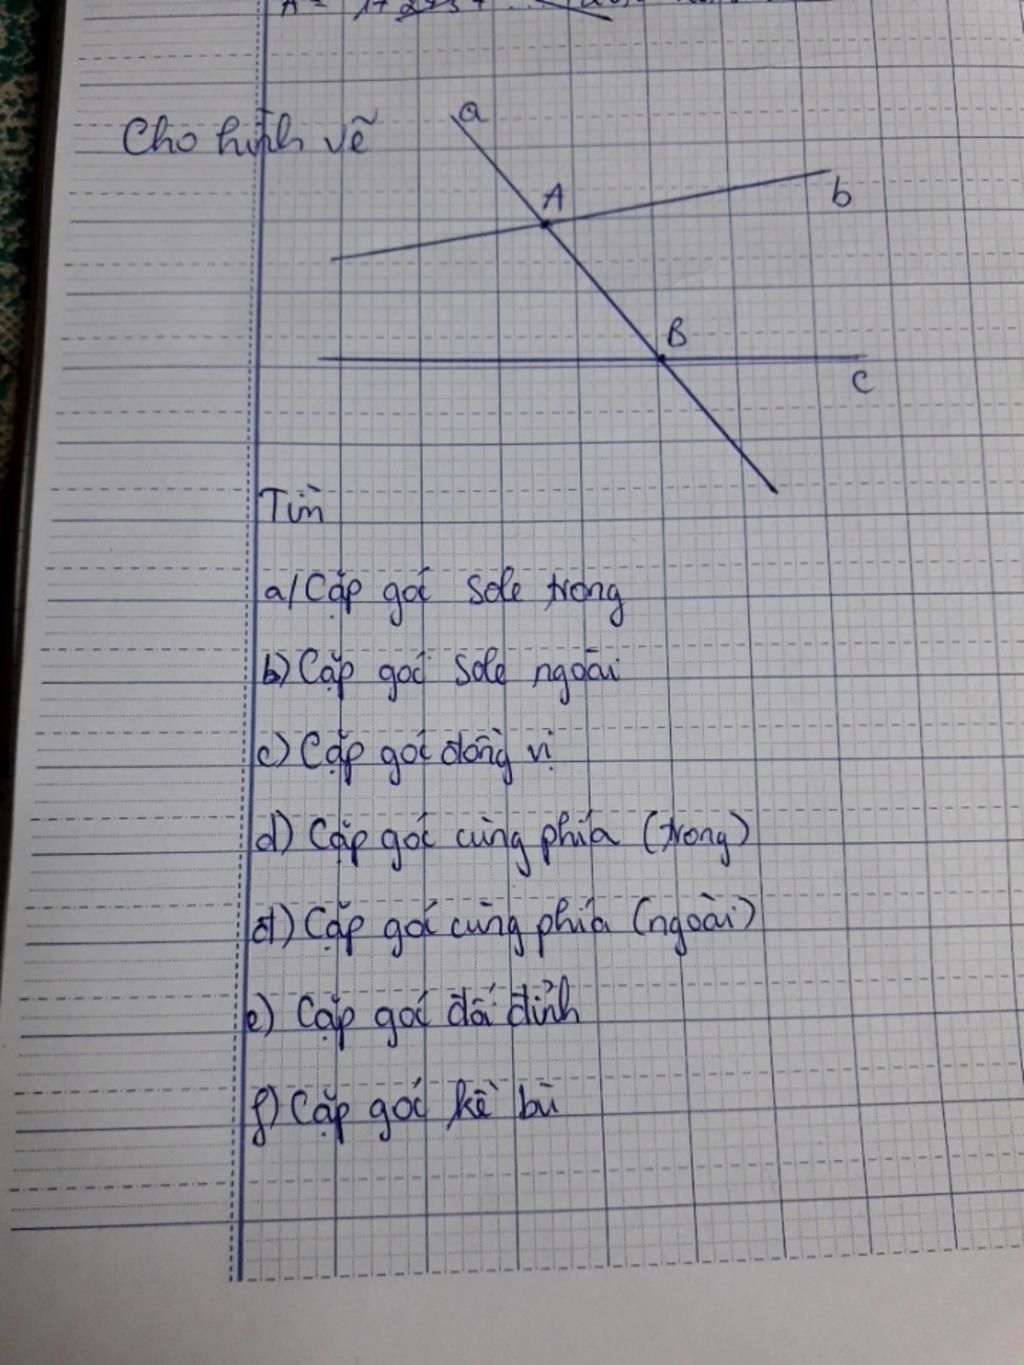 Cho hình vẽ
a
A
b
B
c
Tìm
a/ Cặp góc sole trong
b) Cặp góc sole ngoài
c) Cặp góc đồng vị
d) Cặp góc cùng phía (trong)
đ) Cặp góc cùng phía (ngoài)
e) Cặp góc đối đỉnh
f) Cặp góc kề bù